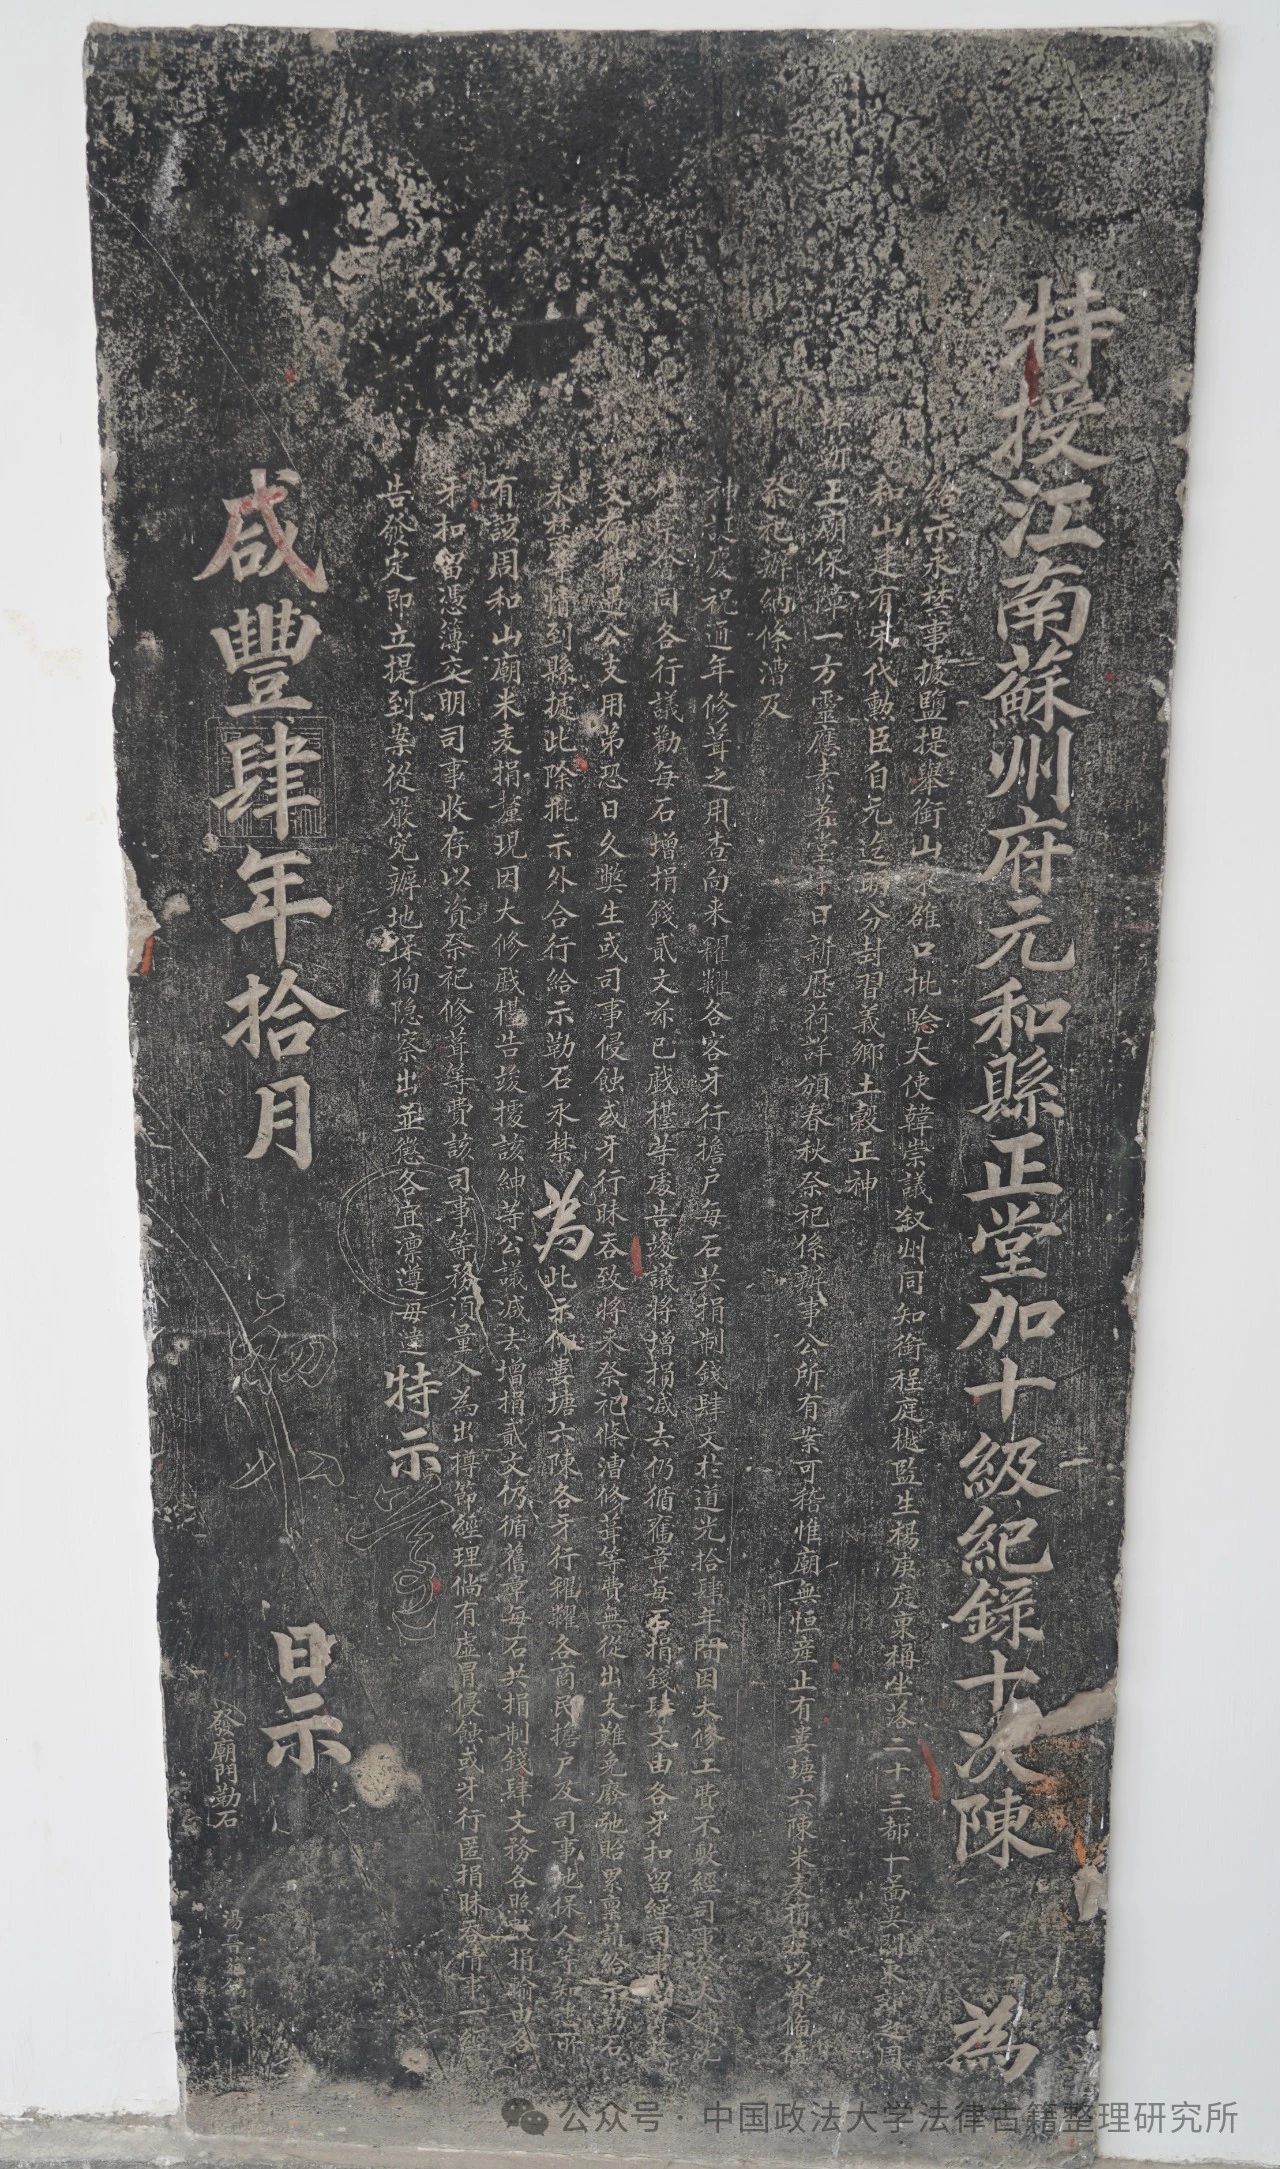 特授江南蘇州府元和縣正堂加十級紀錄十次陳 為
給示永禁事據鹽提舉銜山 確口批驗大使韓崇議叙州同知銜程庭樾監生楊庚庭稟稱坐落二十三都十啚婁門東 之周
和山建有宋代勲臣自元迄明分封習義鄉土穀正神
王廟保障一方靈應素著 日新歷荷詳頒春秋祭祀係辦事公所有案可稽惟廟無恒產止有婁塘六陳米麦捐 以資脩值
祭祀辦納條漕及
神誕慶祝通年修葺之用查向来糴糶各客牙行擔户每石共捐制錢肆文扵道光拾肆年間因大修工費不敷經司事
同各行議勸每石增捐錢貳文茲已戲樓等處告竣議將增捐減去仍循舊章每石捐錢肆文由各牙扣留經司事
支用弟恐日久弊生或司事侵蝕或牙行昧吞致將来祭祀條漕修葺等費無從出支難免廢弛貽累稟請給示勒石
永禁等情到縣據此除批示外合行給示勒石永禁為此示仰婁塘六陳各牙行糴糶各商民擔户及司事地保人等知悉所
有該周和山廟米麦捐釐現因大修戲樓告竣據該紳等公議減去增捐貳文仍循舊章每石共捐制錢肆文務各照數捐輸由各
牙扣留憑簿交明司事收存以資祭祀修葺等費該司事等務須量入為出撙節經理倘有虛冒侵蝕或牙行匿捐昧吞情事一經
告發定即立提到案從嚴究辦地保狥隐察出並懲各宜凛遵毋違特示
咸豐肆年拾月 日示
發廟門勒石
公众号·中国政法大学法律古籍整理研究所